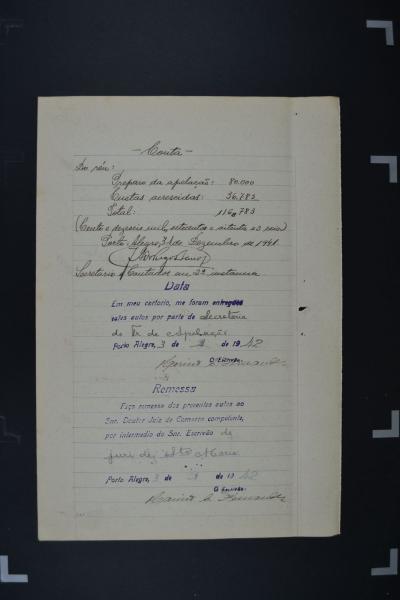 - Conta -
Ao réu:
Preparo da apelação: 80.000
Custas acrescidas: 36.783
Total: 116$783
(Cento e dezeseis mil setecentos e oitenta e tres reis)
Porto Alegre, 31 de Dezembro de 1941.
Secretario Contador em 2ª instancia
Data
Em meu cartorio, me foram entregues
estes autos por parte de Secretaria
do Tr. de Apelação
Porto Alegre, 3 de 2 de 1942
O Escrivão
Remessa
Faço remessa dos presentes autos ao
Snr. Doutor Juiz de Comarca competente,
por intermedio do Snr. Escrivão do
juri de Sta Maria
Porto Alegre, 3 de 2 de 1942
O Escrivão